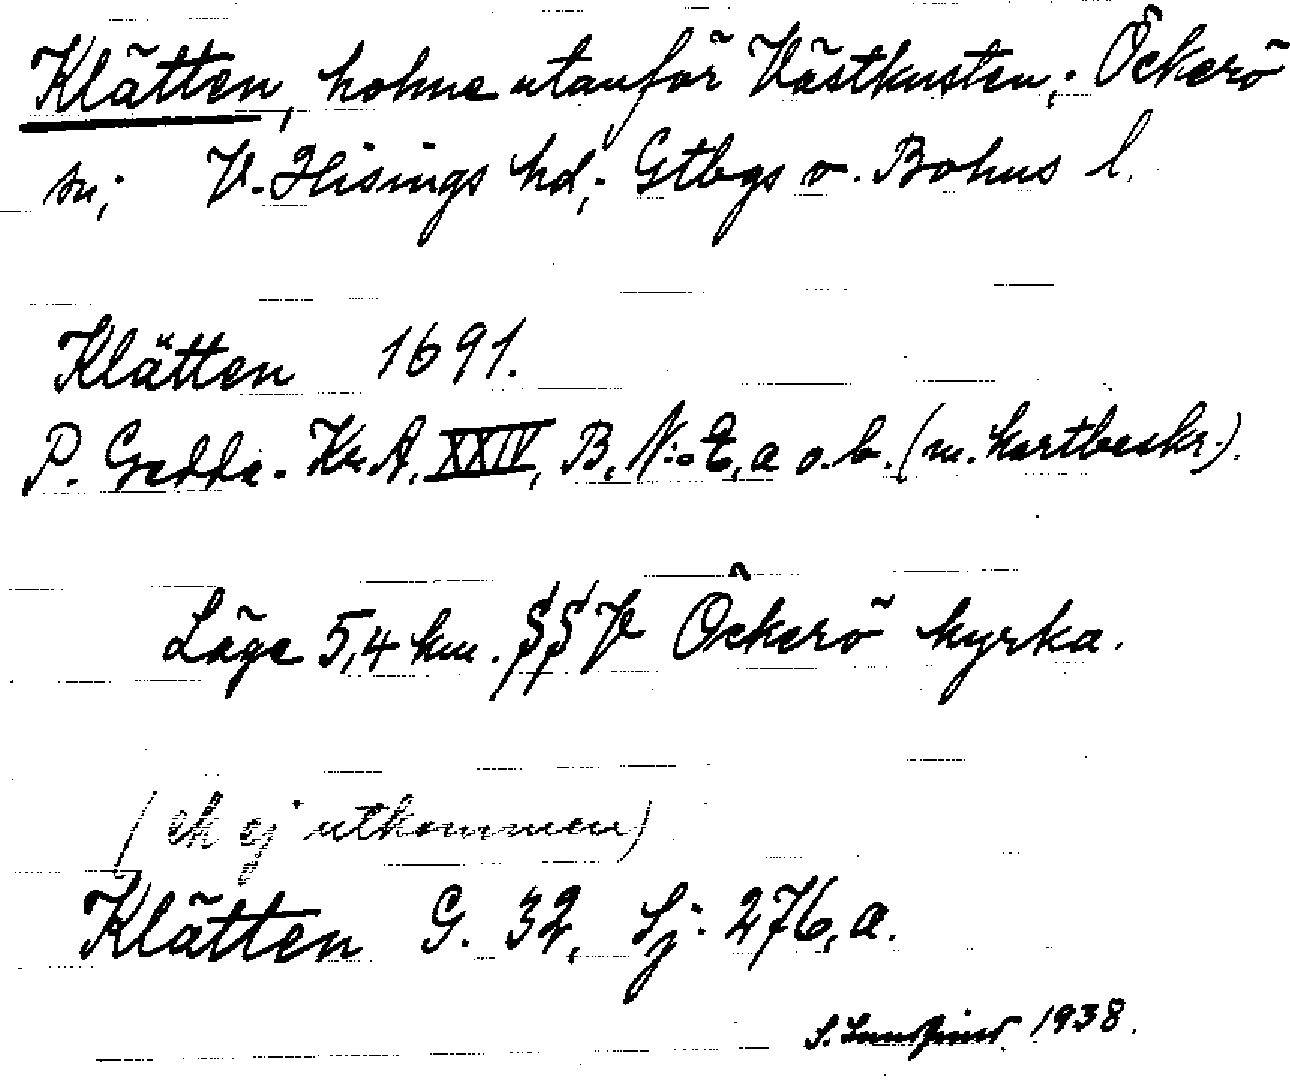 Klätten, holme utanför Västkusten; Öckerö
sn; V. Hisings hd; Gtbgs o. Bohus l.
Klätten 1691.
P. Gedda. Kr.A. XXIV, B, N:o 2, a o. b. (m. kartbeskr.).
Läge 5,4 km. SSV Öckerö kyrka.
(ek ej utkommen)
Klätten G. 32, Sj: 276, a.
S. 1938.